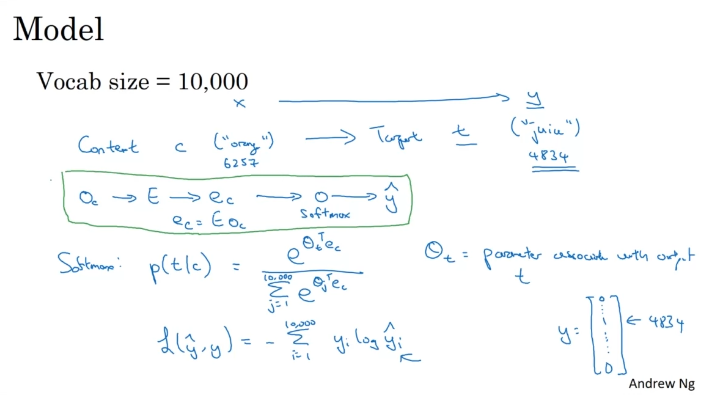 Model
Vocab size = 10,000
x → y
Context c ("orange") → Target t ("juice")
6257 4834
O_c → E → e_c → o → ŷ
e_c = E O_c softmax
Softmax: p(t|c) = e^{θ_t^T e_c} / Σ_{j=1}^{10,000} e^{θ_j^T e_c} θ_t = parameter associated with output t
ℒ(ŷ, y) = - Σ_{i=1}^{10,000} y_i log ŷ_i
y = [0 ⋮ 1 ⋮ 0] ← 4834
Andrew Ng